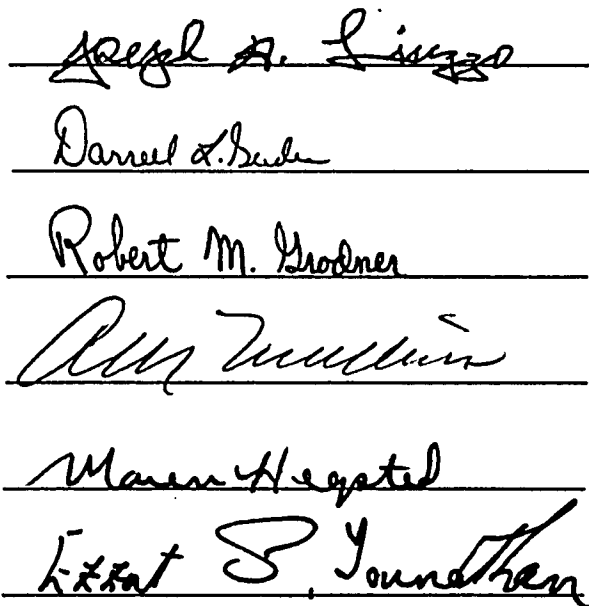 Joseph A. Liuzzo
Darrell L.
Robert M. Grodner
Maren Hegsted
Ezzat S. Younathan